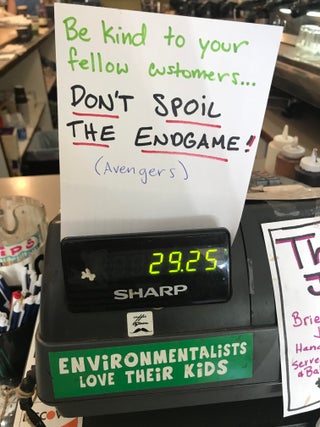 Be kind to your
fellow customers...
DON'T SPOIL
THE ENDGAME!
(Avengers)
29.25
SHARP
ENVIRONMENTALISTS
LOVE THEIR KIDS
Brie
Hand
Serve